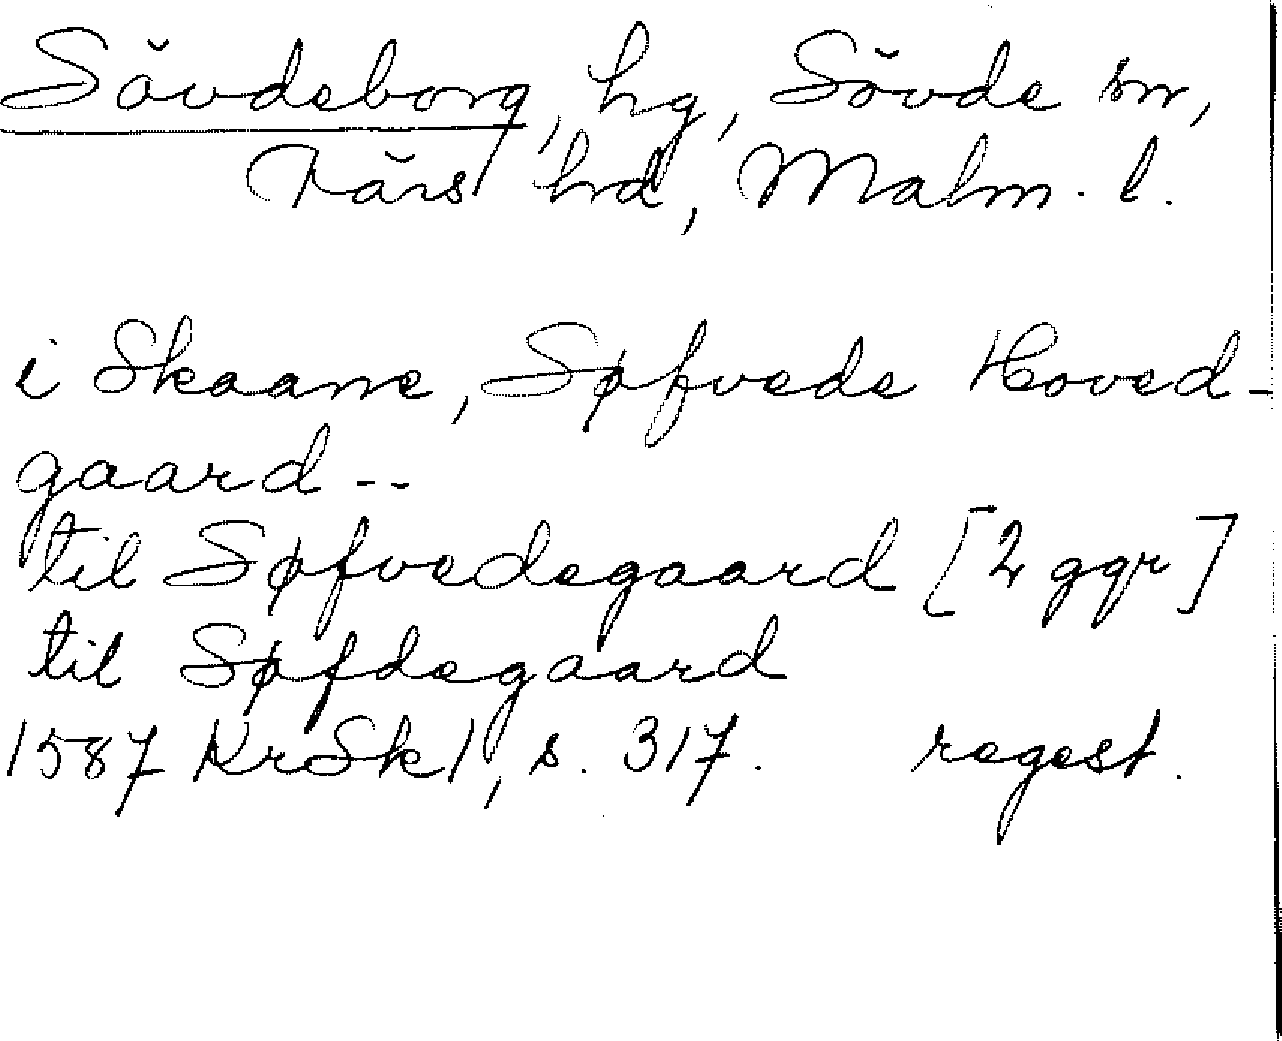 Sövdeborg, hg, Sövde sn,
Färs hd, Malm. l.
i Skaane, Søfvede Hoved-
gaard --
til Søfvedegaard [2 ggr]
til Søfdegaard
1587 KrSk1, s. 317. regest.